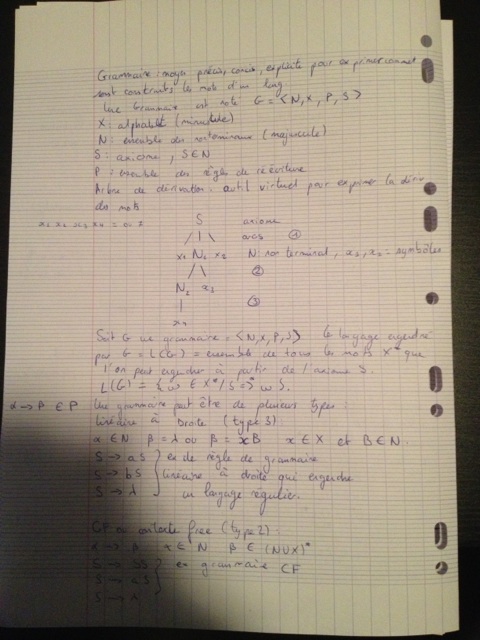 Grammaire : moyen précis, concis, explicite pour exprimer comment
sont construits les mots d'un lang
Une Grammaire est noté G = <N, X, P, S>
X : alphabet (minuscule)
N : ensemble des non terminaux (majuscule)
S : axiome, S ∈ N
P : ensemble des règles de réécriture
Arbre de dérivation : outil virtuel pour exprimer la dériv
des mots
S axiome
/ | \ ①
x1 N1 x2 N : non terminal, x1, x2 = symboles
/ \ ②
N2 x3
| ③
x4
Soit G une grammaire = <N, X, P, S> le langage engendré
par G = L(G) = ensemble de tous les mots X* que
l'on peut engendrer à partir de l'axiome S.
L(G) = { w ∈ X* / S =>* w }
α → β ∈ P Une grammaire peut être de plusieurs types :
linéaire à Droite (type 3) :
α ∈ N β = λ ou β = xB x ∈ X et B ∈ N.
S → aS } ex de règle de grammaire
S → bS } linéaire à droite qui engendre
S → λ } un langage régulier.
CF ou contexte free (type 2) :
α → β α ∈ N β ∈ (N∪X)*
S → SS } ex grammaire CF
S → aS
S → λ